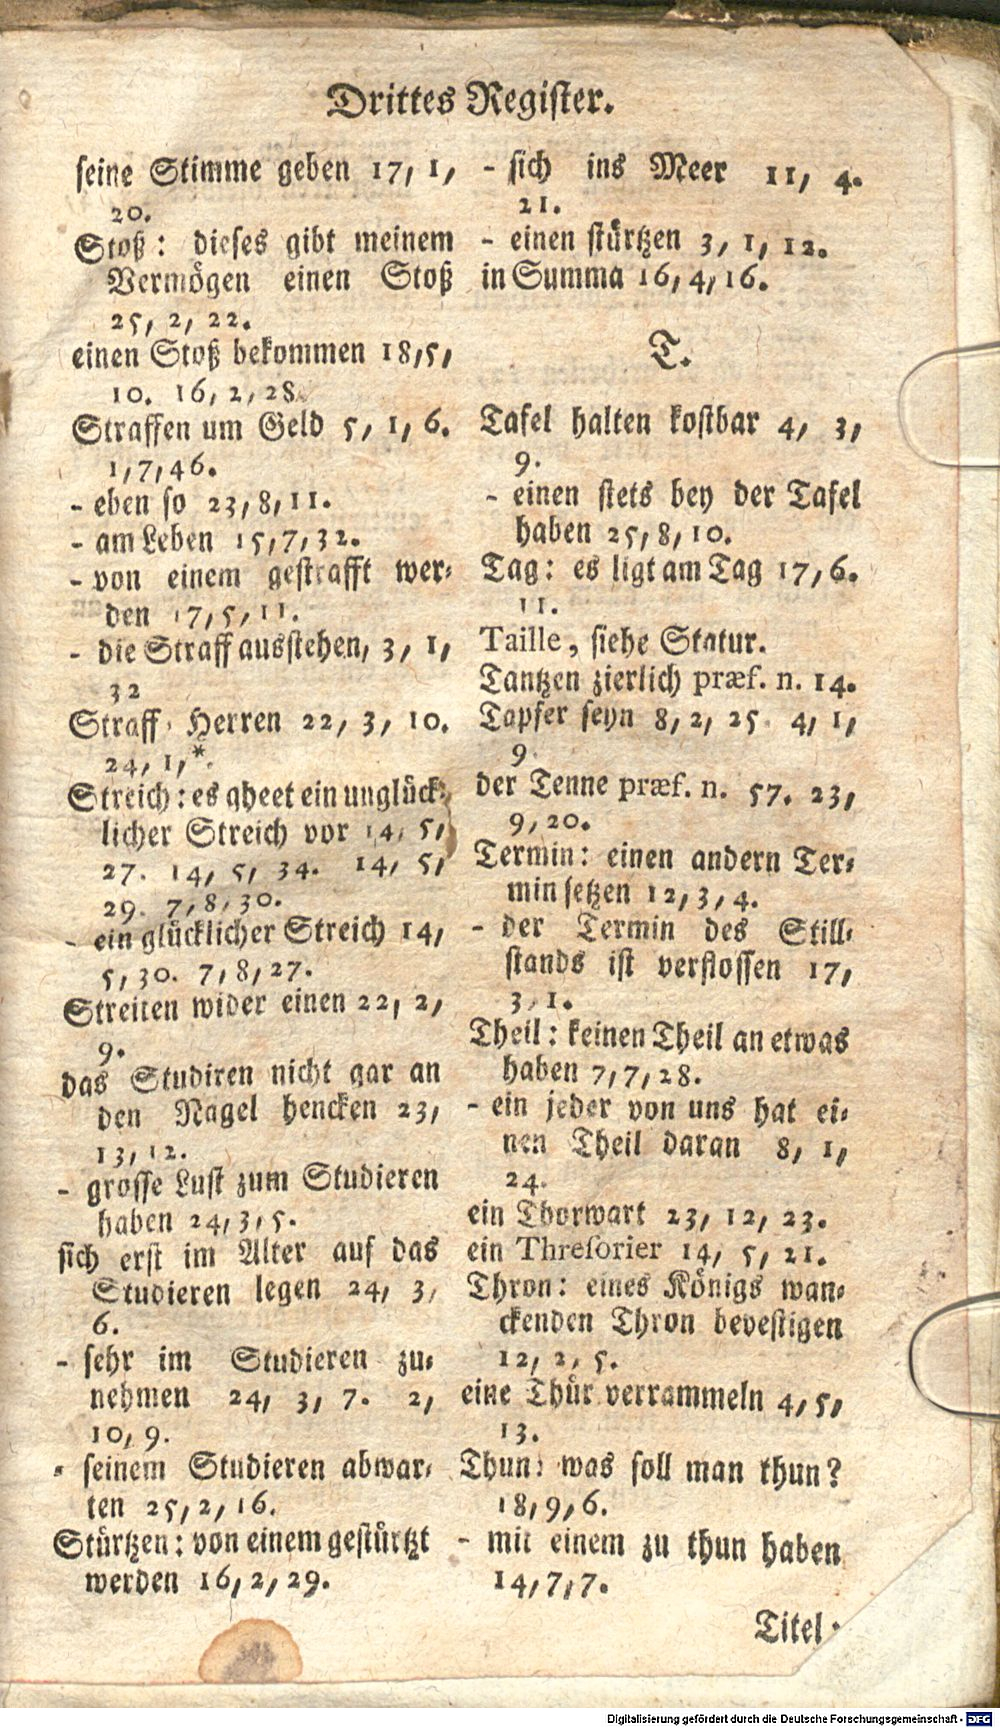 Drittes Register.
seine Stimme geben 17, 1,
20.
Stoß: dieses gibt meinem
Vermögen einen Stoß
25, 2, 22.
einen Stoß bekommen 18, 5,
10. 16, 2, 28.
Straffen um Geld 5, 1, 6.
1, 7, 46.
- eben so 23, 8, 11.
- am Leben 15, 7, 32.
- von einem gestrafft wer-
den 17, 5, 11.
- die Straff ausstehen, 3, 1,
32
Straff, Herren 22, 3, 10.
24, 1, *.
Streich: es gheet ein unglück-
licher Streich vor 14, 5,
27. 14, 5, 34. 14, 5,
29. 7, 8, 30.
- ein glücklicher Streich 14,
5, 30. 7, 8, 27.
Streiten wider einen 22, 2,
9.
das Studiren nicht gar an
den Nagel hencken 23,
13, 12.
- grosse Lust zum Studieren
haben 24, 3, 5.
sich erst im Alter auf das
Studieren legen 24, 3,
6.
- sehr im Studieren zu-
nehmen 24, 3, 7. 2,
10, 9.
- seinem Studieren abwar-
ten 25, 2, 16.
Stürtzen: von einem gestürtzt
werden 16, 2, 29.
- sich ins Meer 11, 4.
21.
- einen stürtzen 3, 1, 12.
in Summa 16, 4, 16.
T.
Tafel halten kostbar 4, 3,
9.
- einen stets bey der Tafel
haben 25, 8, 10.
Tag: es ligt am Tag 17, 6.
11.
Taille, siehe Statur.
Tantzen zierlich præf. n. 14.
Tapfer seyn 8, 2, 25. 4, 1,
9.
der Tenne præf. n. 57. 23,
9, 20.
Termin: einen andern Ter-
min setzen 12, 3, 4.
- der Termin des Still-
stands ist verflossen 17,
3, 1.
Theil: keinen Theil an etwas
haben 7, 7, 28.
- ein jeder von uns hat ei-
nen Theil daran 8, 1,
24.
ein Thorwart 23, 12, 23.
ein Thresorier 14, 5, 21.
Thron: eines Königs wan-
ckenden Thron bevestigen
12, 2, 5.
eine Thür verrammeln 4, 5,
13.
Thun: was soll man thun?
18, 9, 6.
- mit einem zu thun haben
14, 7, 7.
Titel-
Digitalisierung gefördert durch die Deutsche Forschungsgemeinschaft - DFG